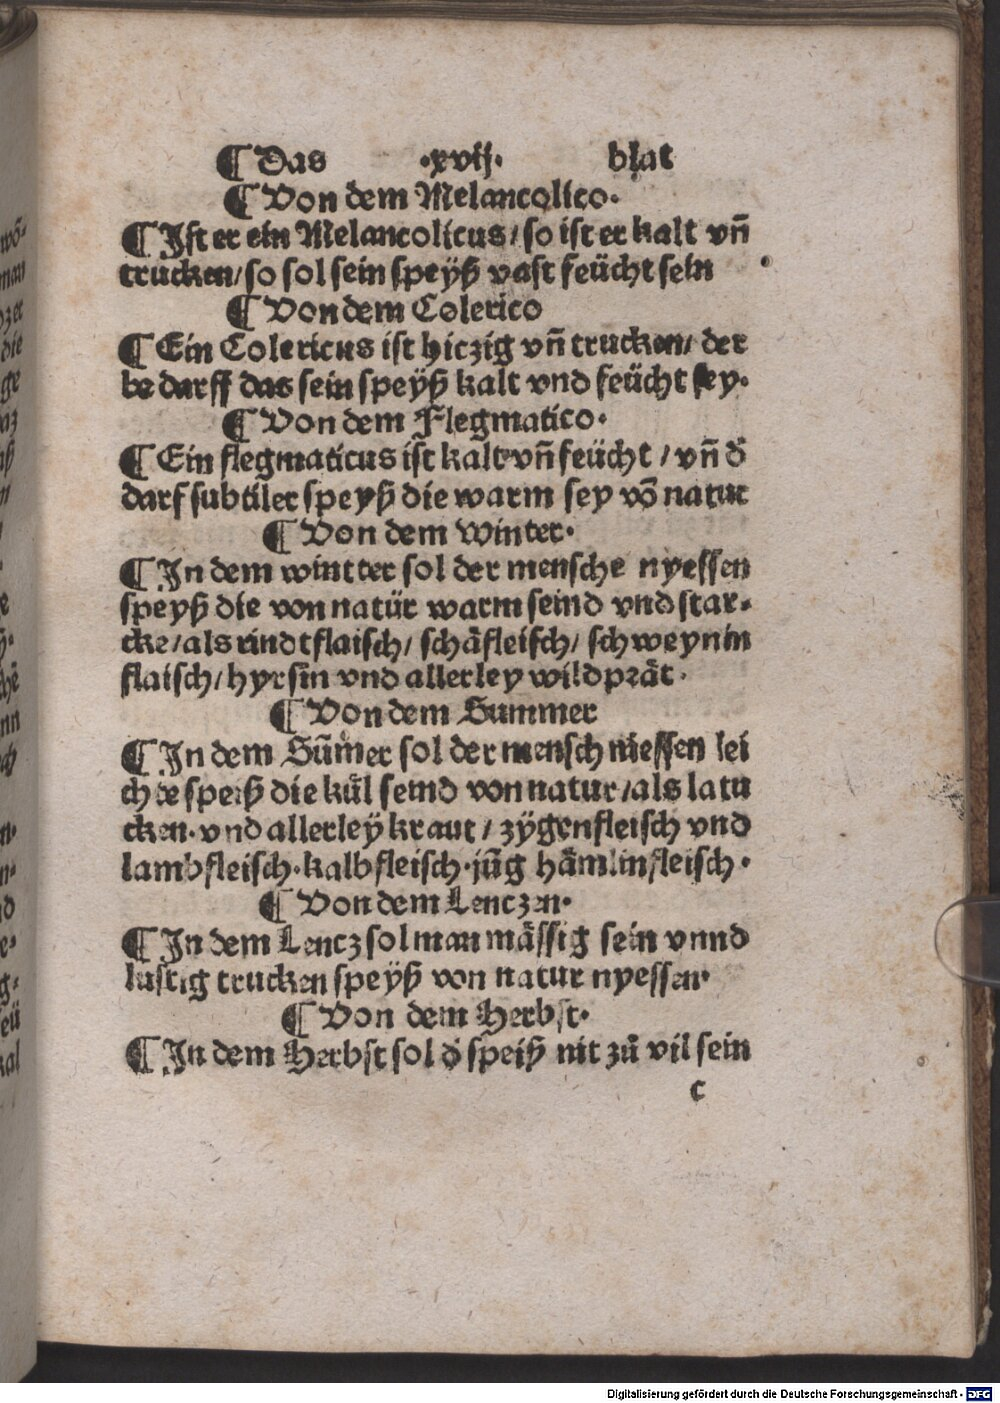 ¶ Das ·xvij· blat
¶ Von dem Melancolico·
¶ Ist er ein Melancolicus/ so ist er kalt vñ
trucken/ so sol sein speÿß vast feücht sein
¶ Von dem Colerico
¶ Ein Colericus ist hiczig vñ trucken/ der
be darff das sein speÿß kalt vnd feücht sey·
¶ Von dem Flegmatico·
¶ Ein flegmaticus ist kalt vñ feücht / vñ d̕
darf subtiler speyß die warm sey võ natur
¶ Von dem Winter·
¶ In dem wintter sol der mensche nyessen
speyß die von natür warm seind vnd star⸗
cke/ als rindtflaisch/ schäfleisch/ schweynin
flaisch/ hyrsin vnd allerley wildprät·
¶ Von dem Summer
¶ In dem Sūm̄er sol der mensch niessen lei
chte speiß die kül seind von natur/ als latu
cken· vnd allerleÿ kraut / zÿgenfleisch vnd
lambfleisch· kalbfleisch· jūg hämlinfleisch·
¶ Von dem Lenczen·
¶ In dem Lencz sol man mässig sein vnnd
lustig trucken speÿß von natur nyessen·
¶ Von dem Herbst·
¶ In dem Herbst sol d̕ speiß nit zů vil sein
c
Digitalisierung gefördert durch die Deutsche Forschungsgemeinschaft - DFG